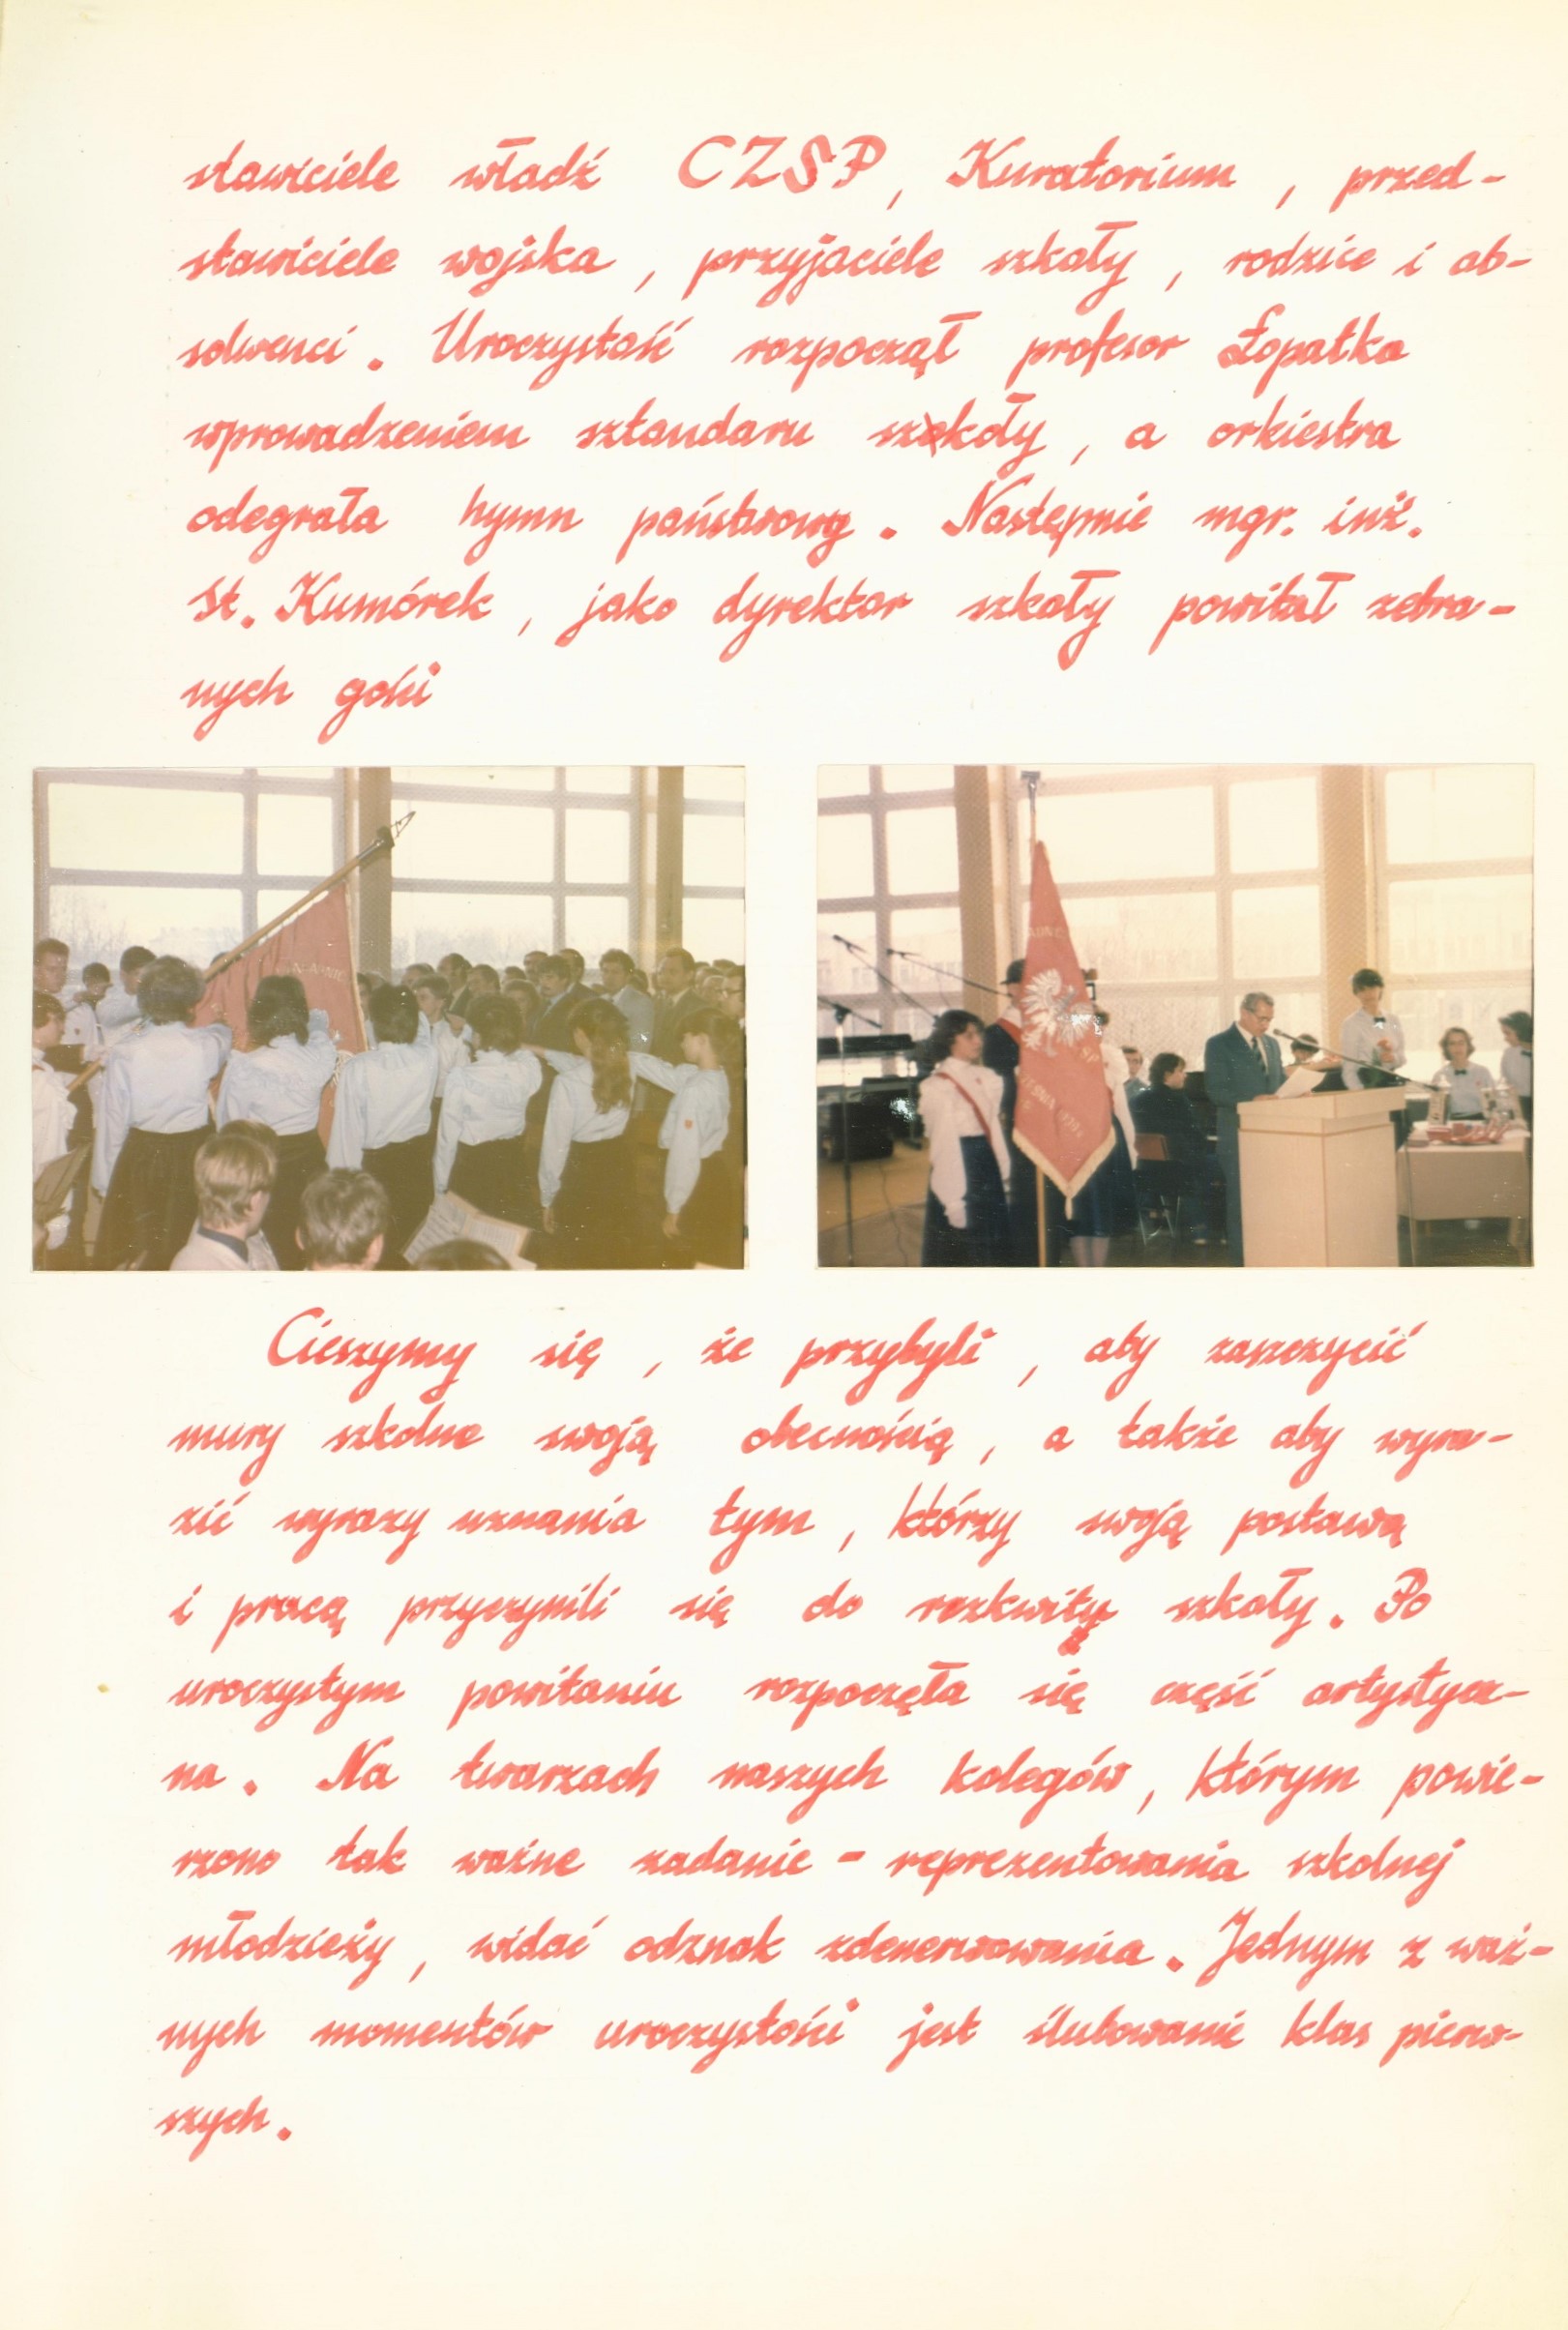 stawiciele władź CZSP, Kuratorium, przed-
stawiciele wojska, przyjaciele szkoły, rodzice i ab-
solwenci. Uroczystość rozpoczął profesor Łopatka
wprowadzeniem sztandaru szkoły, a orkiestra
odegrała hymn państwowy. Następnie mgr. inż.
St. Kumórek, jako dyrektor szkoły powitał zebra-
nych gości
Cieszymy się, że przybyli, aby zaszczycić
mury szkolne swoją obecnością, a także aby wyra-
zić wyrazy uznania tym, którzy swoją postawą
i pracą przyczynili się do rozkwitu szkoły. Po
uroczystym powitaniu rozpoczęła się część artystycz-
na. Na twarzach naszych kolegów, którym powie-
rzono tak ważne zadanie - reprezentowania szkolnej
młodzieży, widać odznak zdenerwowania. Jednym z waż-
nych momentów uroczystości jest ślubowanie klas pierw-
szych.